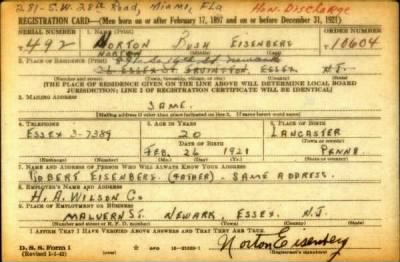 281-S.W. 28th Road, Miami, Fla Hon. Discharge
REGISTRATION CARD—(Men born on or after February 17, 1897 and on or before December 31, 1921)
SERIAL NUMBER
1. NAME (Print)
ORDER NUMBER
492
NORTON RUSH EISENBERG
10604
(First) (Middle) (Last)
2. PLACE OF RESIDENCE (Print)
ESSEX ST. IRVINGTON, ESSEX N.J.
(Number and street) (Town, township, village, or city) (County) (State)
[THE PLACE OF RESIDENCE GIVEN ON THE LINE ABOVE WILL DETERMINE LOCAL BOARD
JURISDICTION; LINE 2 OF REGISTRATION CERTIFICATE WILL BE IDENTICAL]
3. MAILING ADDRESS
SAME.
[Mailing address if other than place indicated on line 2. If same insert word same]
4. TELEPHONE
5. AGE IN YEARS
6. PLACE OF BIRTH
ESSEX 3-7389
20
LANCASTER
DATE OF BIRTH
(Town or county)
FEB. 26 1921
PENNA.
(Exchange) (Number) (Mo.) (Day) (Yr.) (State or country)
7. NAME AND ADDRESS OF PERSON WHO WILL ALWAYS KNOW YOUR ADDRESS
ROBERT EISENBERG. (FATHER) - SAME ADDRESS.
8. EMPLOYER'S NAME AND ADDRESS
H. A. WILSON CO.
9. PLACE OF EMPLOYMENT OR BUSINESS
MALVERN ST. NEWARK, ESSEX. N.J.
(Number and street or R. F. D. number) (Town) (County) (State)
I AFFIRM THAT I HAVE VERIFIED ABOVE ANSWERS AND THAT THEY ARE TRUE.
D. S. S. Form 1
(Revised 1-1-42)
GPO
16-21630-1
Norton Eisenberg
(Registrant's signature)